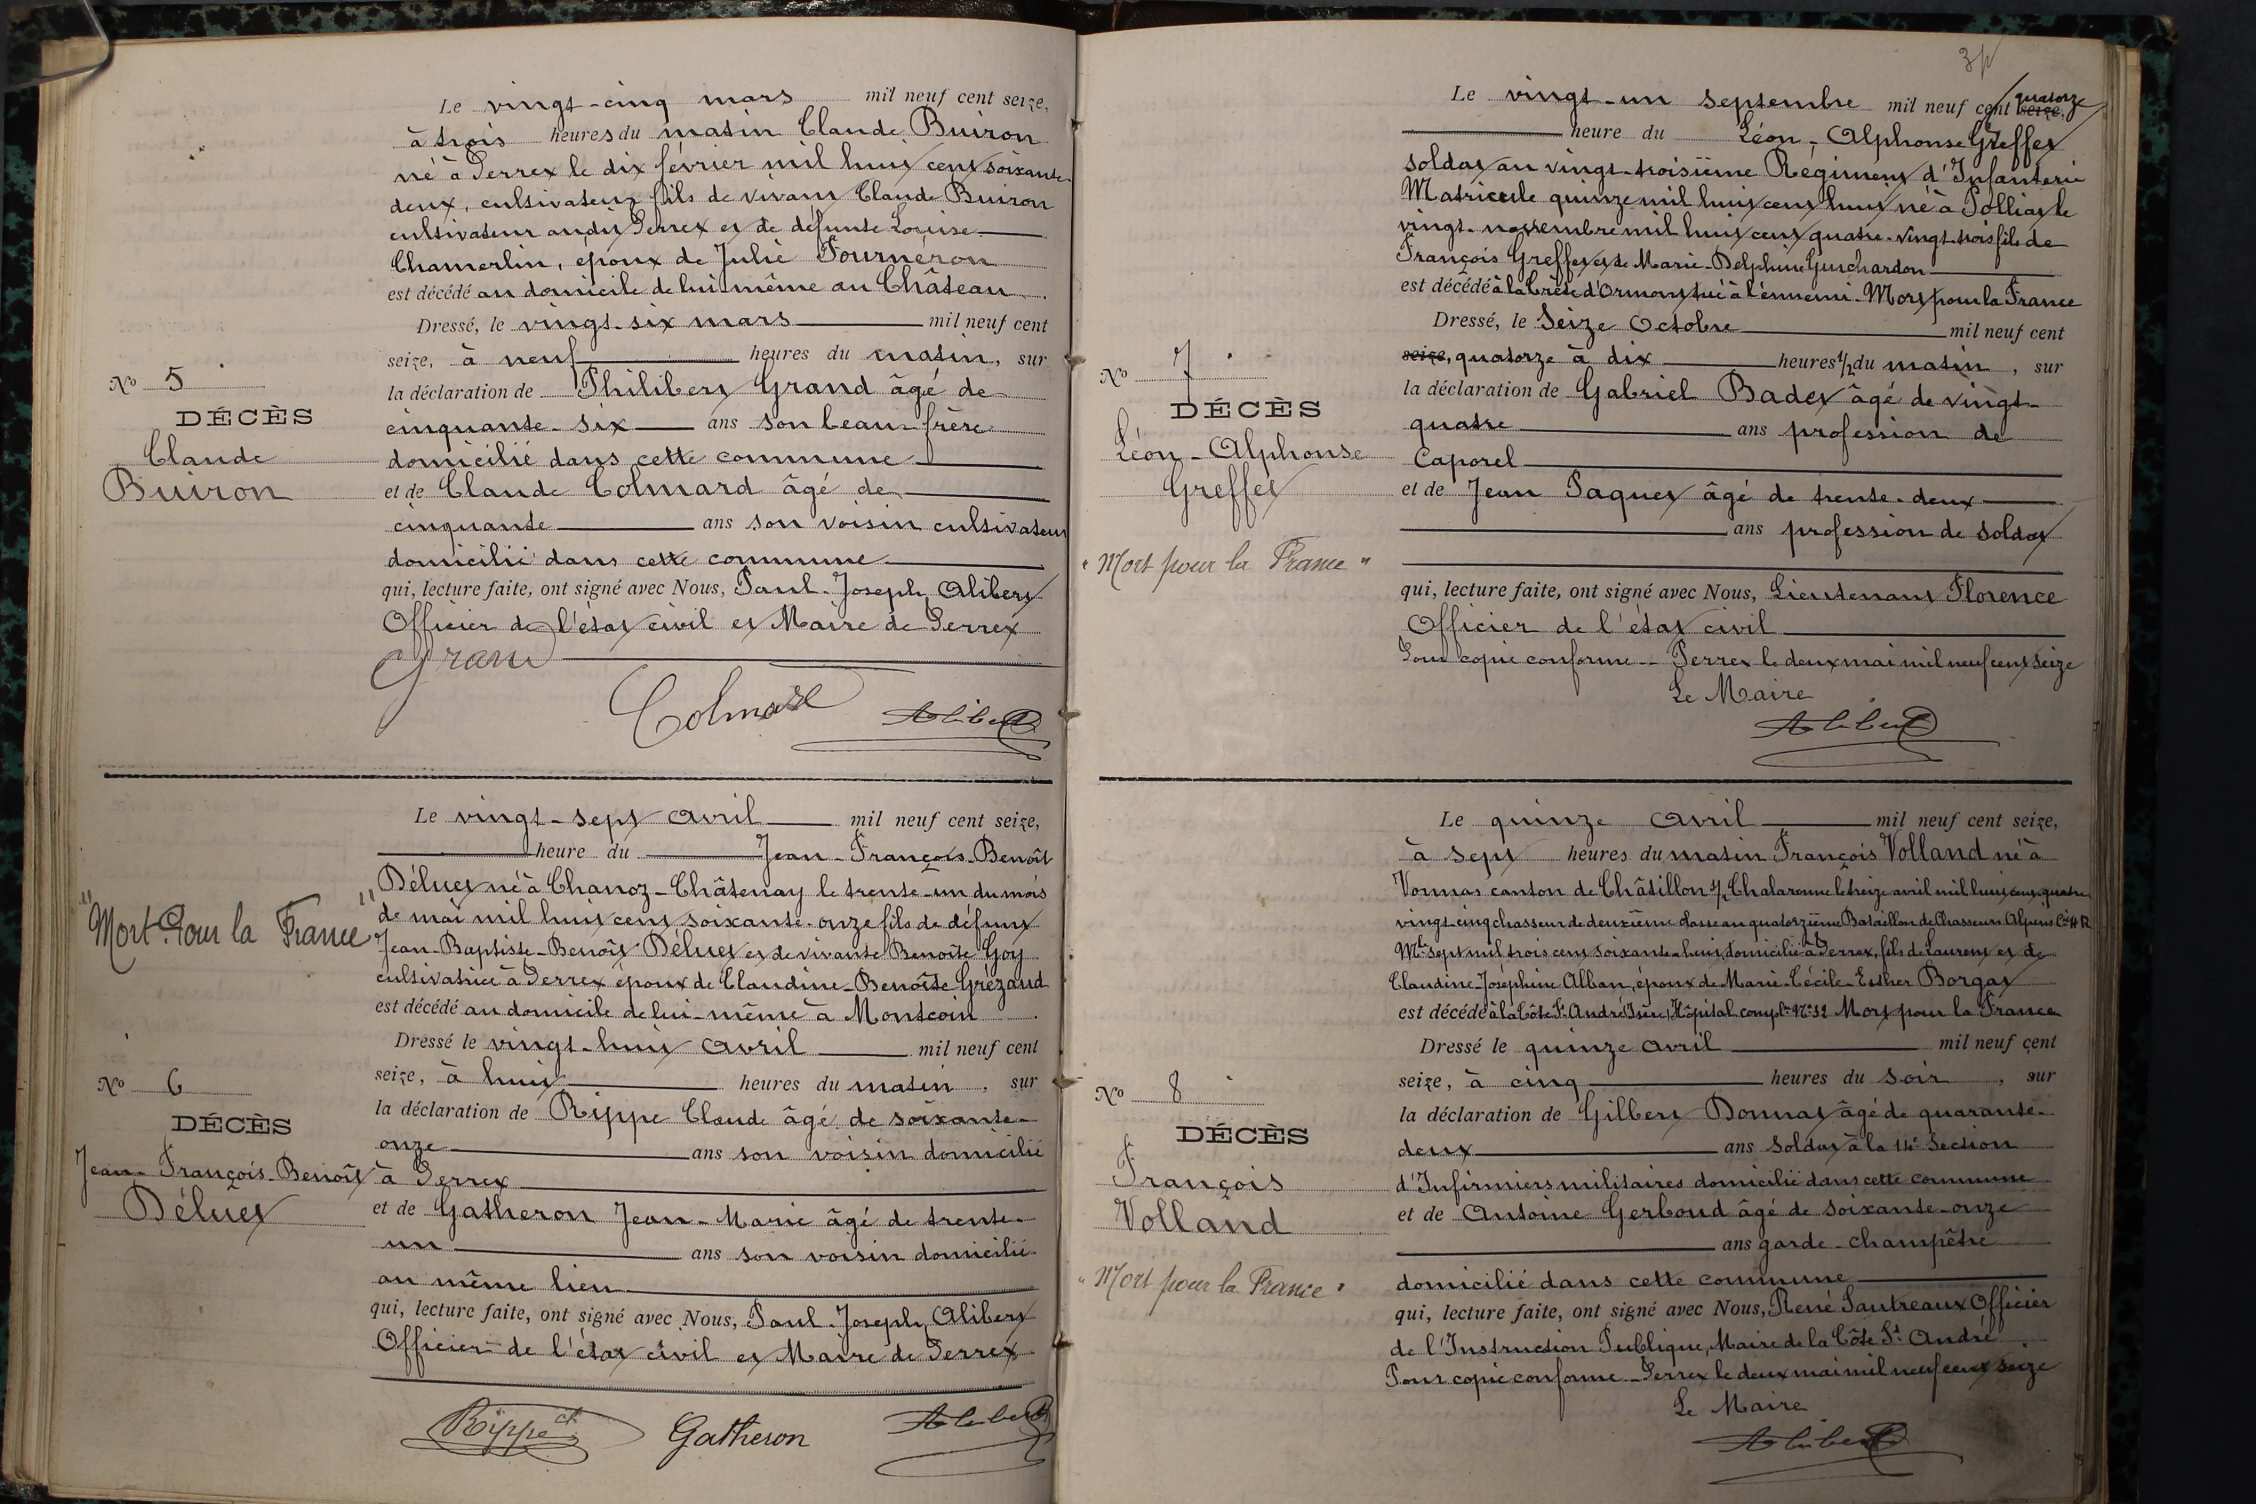 Le vingt-cinq mars mil neuf cent seize,
à trois heures du matin Claude Buiron
né à Perrex le dix février mil huit cent soixante-
deux, cultivateur fils de vivant Claude Buiron
cultivateur audit Perrex et de défunte Louise
Chamerlin, époux de Julie Fourneron
est décédé au domicile de lui même au Château.
Dressé, le vingt-six mars mil neuf cent
seize, à neuf heures du matin, sur
la déclaration de Philibert Grand âgé de
cinquante-six ans son beau-frère
domicilié dans cette commune
et de Claude Colmard âgé de
cinquante ans son voisin cultivateur
domicilié dans cette commune
qui, lecture faite, ont signé avec Nous, Paul-Joseph Alibert
Officier de l'état civil et Maire de Perrex
Grand
Colmard Alibert
No 5
DÉCÈS
Claude
Buiron
Le vingt-sept avril mil neuf cent seize,
heure du Jean-François-Benoît
Déluet né à Chanoz-Châtenay le trente-un du mois
de mai mil huit cent soixante-onze fils de défunt
Jean-Baptiste-Benoît Déluet et de vivante Benoîte Goy
cultivatrice à Perrex époux de Claudine-Benoîte Grézaud
est décédé au domicile de lui-même à Montcoin.
Dressé le vingt-huit avril mil neuf cent
seize, à huit heures du matin, sur
la déclaration de Rippe Claude âgé de soixante-
onze ans son voisin domicilié
à Perrex
et de Gatheron Jean-Marie âgé de trente-
un ans son voisin domicilié
au même lieu
qui, lecture faite, ont signé avec Nous, Paul-Joseph Alibert
Officier de l'état civil et Maire de Perrex
Rippe cl Gatheron Alibert
"Mort Pour la France"
No 6
DÉCÈS
Jean-François-Benoît
Déluet
Le vingt-un septembre mil neuf cent seize, quatorze
heure du Léon-Alphonse Greffet
soldat au vingt-troisième Régiment d'Infanterie
Matricule quinze mil huit cent huit né à Polliat le
vingt-novembre mil huit cent quatre-vingt-trois fils de
François Greffet et de Marie-Delphine Guichardon
est décédé à la Crête d'Ormont tué à l'ennemi. Mort pour la France
Dressé, le Seize Octobre mil neuf cent
seize, quatorze à dix heures 1/2 du matin, sur
la déclaration de Gabriel Badet âgé de vingt-
quatre ans profession de
Caporel
et de Jean Paquet âgé de trente-deux
ans profession de soldat
qui, lecture faite, ont signé avec Nous, Lieutenant Florence
Officier de l'état civil
Pour copie conforme -- Perrex le deux mai mil neuf cent seize
Le Maire
Alibert
No 7
DÉCÈS
Léon-Alphonse
Greffet
"Mort pour la France"
Le quinze avril mil neuf cent seize,
à sept heures du matin François Volland né à
Vonnas canton de Châtillon s/ Chalaronne le treize avril mil huit cent quatre
vingt-cinq chasseur de deuxième classe au quatorzième Bataillon de Chasseurs Alpins Cie H R
Mle sept mil trois cent soixante-huit, domicilié à Perrex, fils de Laurent et de
Claudine-Joséphine Alban, époux de Marie-Cécile-Esther Borgat
est décédé à la Côte St André (Isère) Hôpital compl. No 32 Mort pour la France
Dressé le quinze avril mil neuf cent
seize, à cinq heures du soir, sur
la déclaration de Gilbert Donnat âgé de quarante-
deux ans soldat à la 14e Section
d'Infirmiers militaires domicilié dans cette commune
et de Antoine Gerboud âgé de soixante-onze
ans garde-champêtre
domicilié dans cette commune
qui, lecture faite, ont signé avec Nous, René Pautreaux Officier
de l'Instruction Publique, Maire de la Côte St André
Pour copie conforme - Perrex le deux mai mil neuf cent seize
Le Maire
Alibert
No 8
DÉCÈS
François
Volland
"Mort pour la France"